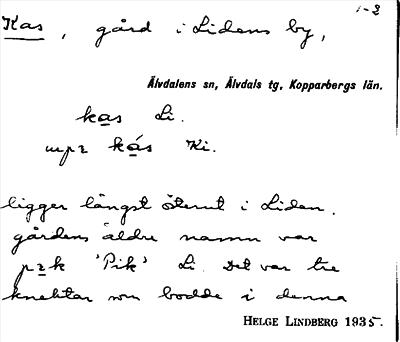 1-2
Kas, gård i Lidens by,
Älvdalens sn, Älvdals tg, Kopparbergs län.
kas Li.
kás Ki.
ligger längst österut i Liden.
gårdens äldre namn var
pɪk 'Pik' Li. Det var tre
knektar som bodde i denna
HELGE LINDBERG 1935.